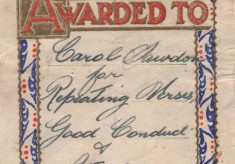 AWARDED TO
Carol Rawdon
for
Repeating Verses,
Good Conduct
&